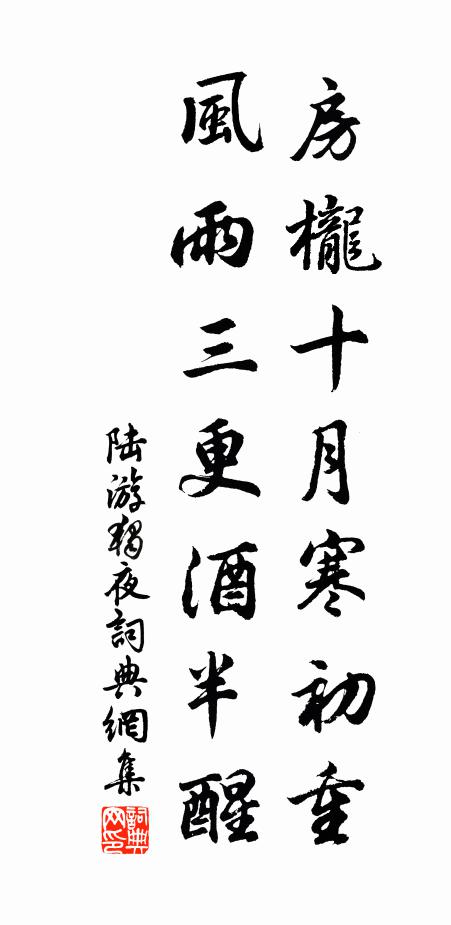 房櫳十月寒初重
風雨三更酒半醒
陸游獨夜詞典網集
詞典网印